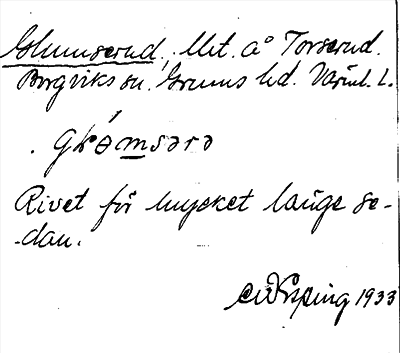 Glumserud, llet. å Torserud.
Borgviks sn. Grums hd. Värml. L.
. gló̵msərə
Rivet för mycket länge se-
-dan.
1933